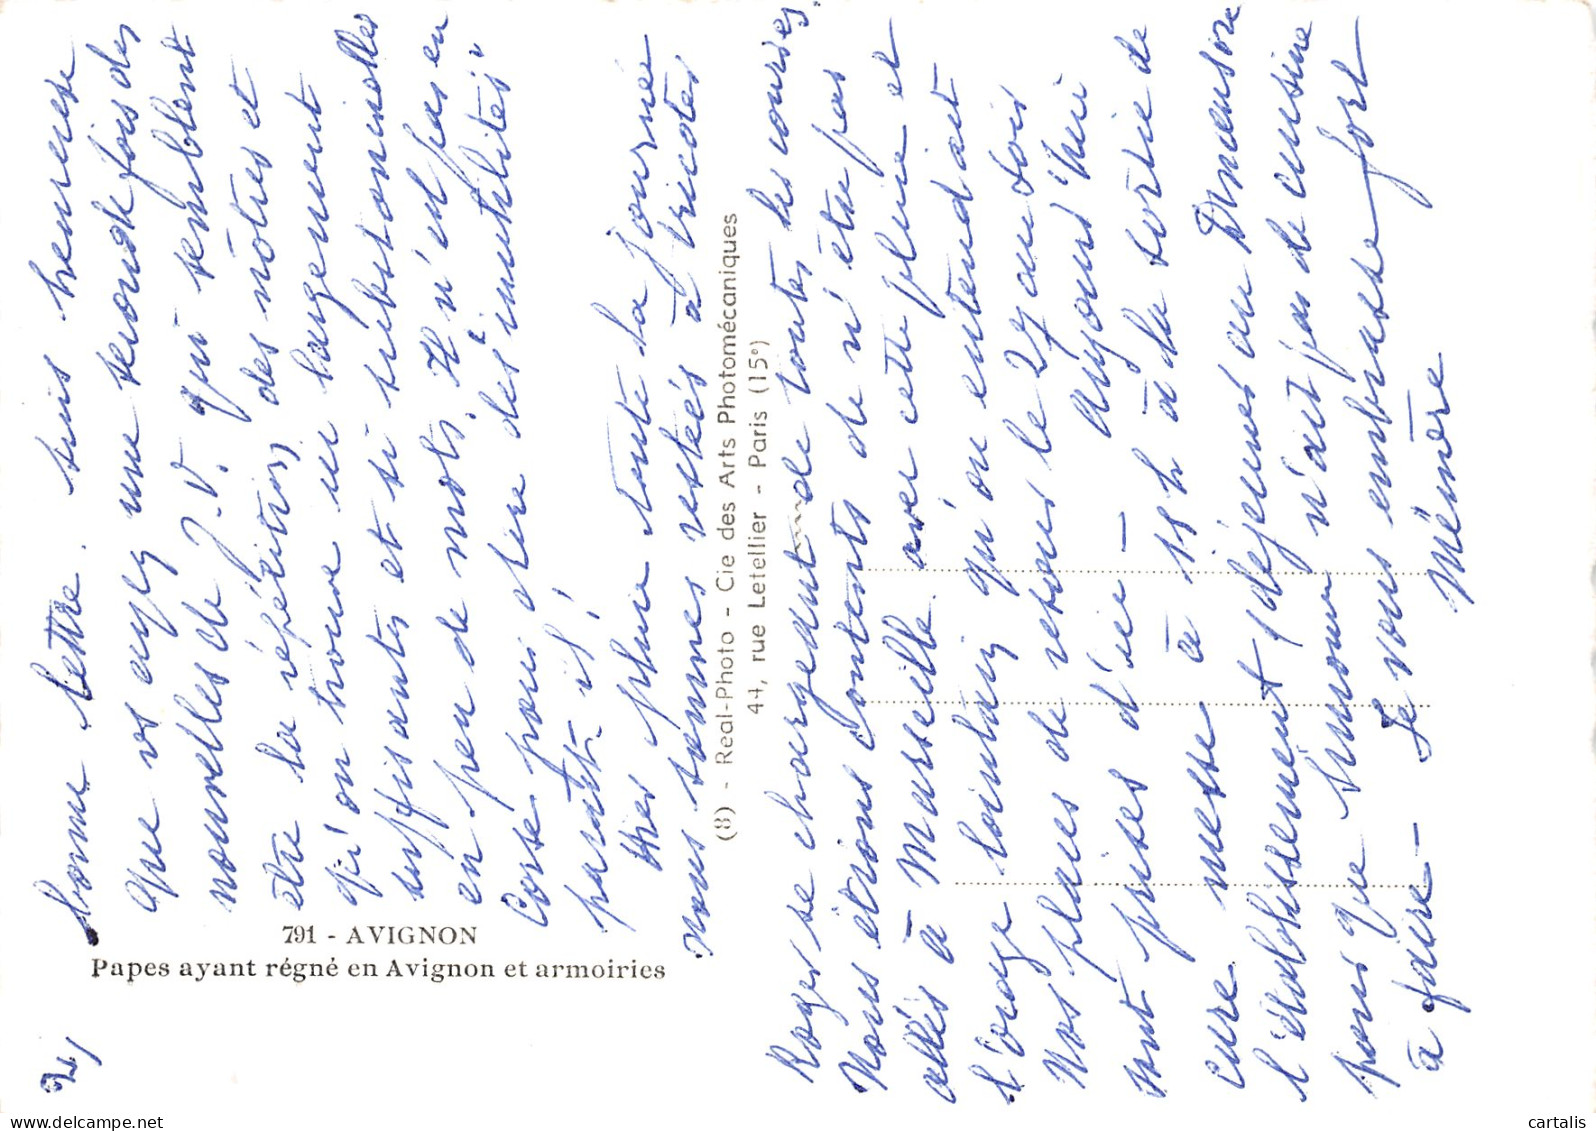 2/
bonne lettre. suis heureuse
que vs ayez une seconde fois des
nouvelles de J.V. qui semblent
être la répétition des nôtres et
qu'on trouve ici largement
suffisantes et si substantielles
en peu de mots. Il n'est pas en
Corse pour dire des "inutilités"
paraît-il!
Hier pluie toute la journée
nous sommes restées à tricoter
Roger se chargeant de toutes les courses.
Nous étions contents de n'être pas
allés à Marseille avec cette pluie et
l'orage lointain qu'on entendait
Nos places de retour le 29 au soir
sont prises d'ici - Aujourd'hui
messe à 11 h à la sortie de
cure l'établissement (déjeuner au
pour que Simone n'ait pas de cuisine
à faire - Je vous embrasse fort
Mémère
791 - AVIGNON
Papes ayant régné en Avignon et armoiries
(8) - Real-Photo - Cie des Arts Photomécaniques
44, rue Letellier - Paris (15e)
cartalis
delcampe.net